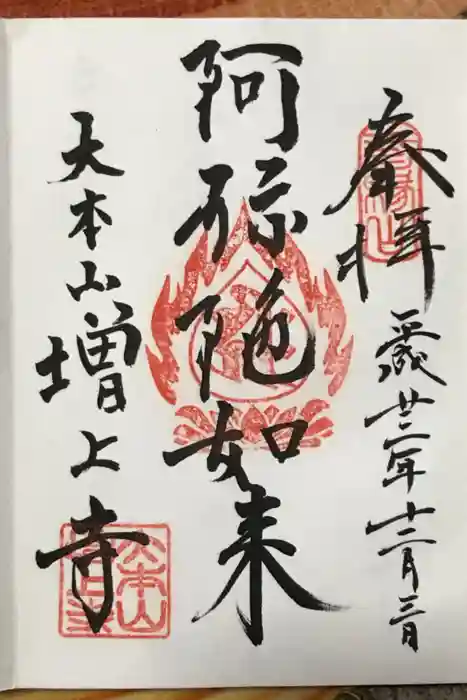 奉拝
平成廿二年十二月三日
阿弥陀如来
大本山増上寺
大本山
増上寺